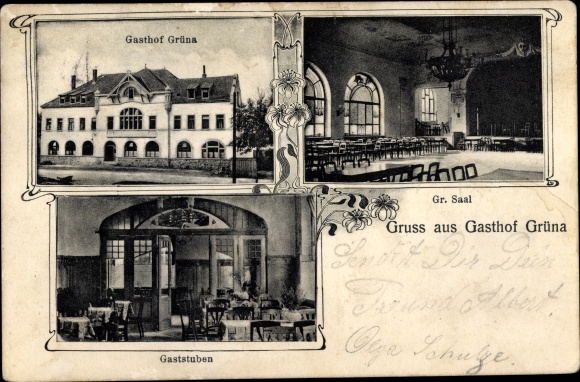 Gasthof Grüna
Gr. Saal
Gruss aus Gasthof Grüna
Gaststuben
Sendet Dir Dein
Freund Albert.
Olga Schulze.